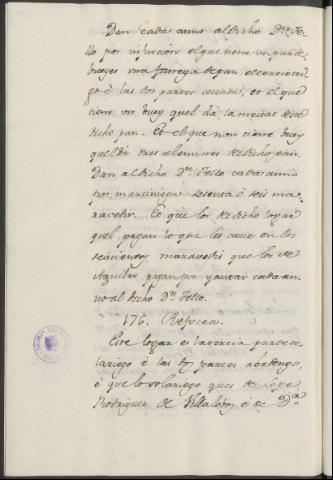 Dan cada anno al dicho Dn. Te-
llo por infurcion el que tiene un par de
bueyes una farrega de pan, el tercio tri-
go é las dos partes cevada, et el que
tiene un buey quel dá la meitat deste
dicho pan. Et el que non tiene buey
quel dá tres alemines del dicho pan.
Dan al dicho Dn. Tello cada anno
por martiniega sesenta é seis ma-
ravedis. Et que los del dicho logar
quel pagan lo que les cave en los
seiscientos maravedis que los de
Aguilar pagan por yantar cada an-
no al dicho Dn. Tello.
176. Resocea.
Este logar es la tercia parte so-
lariego é las dos partes abadengo,
é que lo solariego ques de Lope
Rodriguez de Villalobos é de Dn.